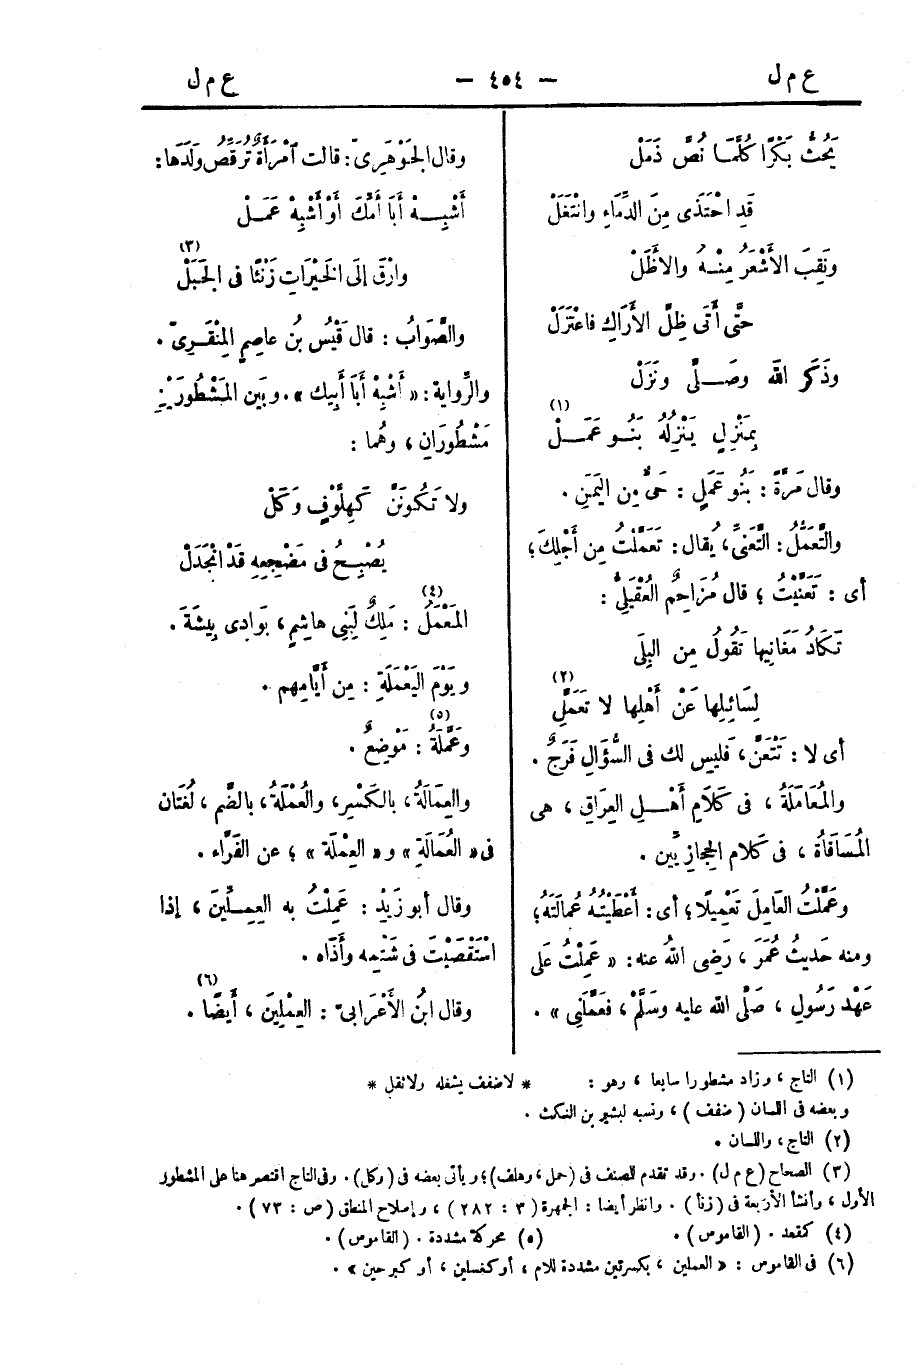 ع م ل — ٤٥٤ — ع م ل
يَحُثُّ بَكْرًا كُلَّمَا نُصَّ ذَمَلْ
قَدِ احْتَذَى مِنَ الدِّمَاءِ وانْتَعَلْ
ونَقِبَ الأَشْعَرُ مِنْـهُ والأَظَلّْ
حتَّى أَتَى ظِلَّ الأَراكِ فاعْتَزَلْ
وذَكَر اللهَ وصَـلَّى ونَزَلْ
بِمَنْزِلٍ يَنْزِلُهُ بَنُـو عَمَـلْ (١)
وقال مَرَّةً : بَنُو عَمَلٍ : حَىٌّ مِن اليَمَنِ .
والتَّعَمُّلُ : التَّعَنِّى ، يُقال : تَعَمَّلْتُ مِن أَجْلِكَ ؛
أى : تَعَنَّيْتُ ؛ قال مُزاحِمٌ العُقَيلِىُّ :
تَكادُ مَغَانِيها تَقُولُ مِن البِلَى
لِسَائِلِها عَنْ أَهْلِها لا تَعَمَّلِ (٢)
أى لا : تَتَعَنَّ ، فَليس لك فى السُّؤَالِ فَرَجٌ .
والمُعَامَلَةُ ، فى كَلَامِ أَهْـلِ العِراقِ ، هى
المُسَاقَاةُ ، فى كَلام الحِجازِيِّين .
وعَمَّلْتُ العَامِلَ تَعْمِيلًا ؛ أى : أَعْطَيْتُهُ عُمالَتَهُ ؛
ومنه حَديثُ عُمَرَ ، رَضِى اللهُ عنه : « عَمِلْتُ على
عَهْد رَسُولِ ، صَلَّى الله عليه وسَلَّمْ ، فعَمَّلَنِى » .
وقال الجَوْهَرِىّ : قالت امْرَأَةٌ تُرَقِّصُ وَلَدَهَا :
أَشْبِـهْ أَبَا أُمِّكَ أَوْ أَشْبِهْ عَمَـلْ
وارْقَ إلَى الخَيْراتِ زَنْئًا فى الجَبَلْ (٣)
والصَّوَابُ : قال قَيْسُ بنُ عاصِمٍ المِنْقَرِىّ .
والرِّواية : « أَشْبِهْ أَبَا أَبِيك » . وبَين المَشْطُورَيْنِ
مَشْطُورَانِ ، وهُما :
ولا تَكُونَنَّ كَهِلَّوْفٍ وَكَلْ
يُصْبِـحُ فى مَضْجِعِهِ قَدْ انْجَدَلْ
المَعْمَلُ (٤) : مَلِكٌ لِبَنِى هاشِمٍ ، بَوادِى بِيشَةَ .
ويَوْمَ اليَعْمَلَةِ : مِن أَيَّامِهم .
وعَمَّلَةُ (٥) : مَوْضِعٌ .
والعِمَالَةُ ، بالكَسْرِ ، والعُمْلَةُ ، بالضَّم ، لُغَتَان
فى « العُمَالَةِ » و « العِمْلَة » ؛ عن الفَرَّاء .
وقال أبو زَيْدٍ : عَمِلْتُ به العِمِـلِّينَ ، إذا
اسْتَقْصَيْتَ فى شَتْمِه وأَذَاه .
وقال ابنُ الأَعْرابىّ : العِمْلِينَ ، أَيضًا (٦) .
(١) التاج ، وزاد مشطورا سابعا ، وهو : * لاضفف يشغله ولانقل *
وبعضه فى اللسان ( ضفف ) ، ونسبه لبشير بن النكث .
(٢) التاج ، واللسان .
(٣) الصحاح (ع م ل) . وقد تقدم للصنف فى (حمل ، وهلف) ؛ ويأتى بعضه فى (وكل) . وفى التاج اقتصر هنا على المشطور
الأول ، وأنشأ الأربعة فى ( زنأ ) . وانظر أيضا : الجمهرة ( ٣ : ٢٨٢ ) ، وإصلاح المنطق ( ص : ٧٣ ) .
(٤) كمقعد . ( القاموس ) . (٥) محركة مشددة . ( القاموس ) .
(٦) فى القاموس : « العملين ، بكسرتين مشددة للام ، أو كغسلين ، أو كبرحين » .